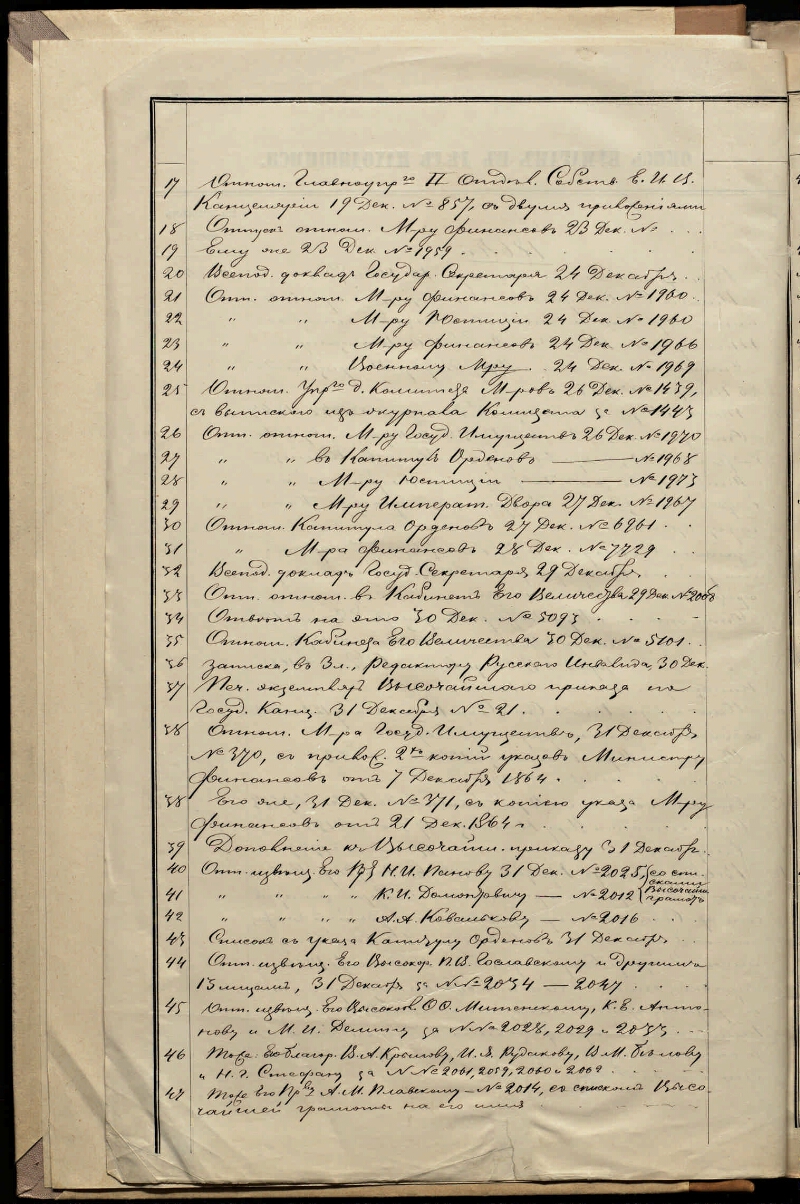 17 Отнош. Главноупр<sup>го</sup> II Отдѣл. Собств. Е. И. В.
Канцеляріи 19 Дек. № 857, съ двумя приложеніями
18 Отпускъ отнош. М-ру Финансовъ 23 Дек. №
19 Ему же 23 Дек. № 1959
20 Всепод. докладъ Государ. Секретаря 24 Декабря
21 Отп. отнош. М-ру Финансовъ 24 Дек. № 1960
22 " " М-ру Юстиціи 24 Дек № 1960
23 " " М-ру Финансовъ 24 Дек. № 1966
24 " " Военному М-ру 24 Дек. № 1969
25 Отнош. Упр<sup>го</sup> д. Комитета М-ровъ 26 Дек. № 1439,
съ выпискою изъ журнала Комитета за № 1443
26 Отп. отнош. М-ру Госуд. Имуществъ 26 Дек. № 1970
27 " " въ Капитулъ Орденовъ — № 1968
28 " " М-ру Юстиціи — № 1973
29 " " М-ру Императ. Двора 27 Дек. № 1967
30 Отнош. Капитула Орденовъ 27 Дек. № 6961
31 " М-ра Финансовъ 28 Дек. № 7729
32 Всепод. докладъ Госуд. Секретаря 29 Декабря
33 Отп. отнош. въ Кабинетъ Его Величества 29 Дек. № 2006
34 Отвѣтъ на это 30 Дек. № 5093
35 Отнош. Кабинета Его Величества 30 Дек. № 5101
36 Записка, въ 3 л., Редактору Русскаго Инвалида, 30 Дек.
37 Печ. экземпляръ Высочайшаго приказа по
Госуд. Канц. 31 Декабря № 21.
38 Отнош. М-ра Госуд. Имуществъ, 31 Декабря
№ 370, съ прилож. 2<sup>хъ</sup> копій указовъ Министру
Финансовъ отъ 7 Декабря 1864
38 Его же, 31 Дек. № 371, съ копіею указа М-ру
Финансовъ отъ 21 Дек. 1864 г.
39 Дополненіе къ Высочайш. приказу 31 Декабр.
40 Отп. извѣщ. Его Н. И. Панову 31 Дек. № 2025, (со спи-
сками
41 " " " " К. И. Домонтовичу — № 2012 Высочайш.
грамотъ
42 " " " " А. А. Ковалькову — № 2016
43 Списокъ съ указа Капитулу Орденовъ 31 Декабря
44 Отп. извѣщ. Его Высокор. П. В. Гославскому и другимъ
13 лицамъ, 31 Декабр. за №№ 2034 — 2047
45 Отп. извѣщ. Его Высокоб. О. О. Митенскому, К. Е. Анто-
нову и М. И. Демину за №№ 2028, 2029 и 2033
46 Тоже: Его благор. В. А. Крылову, И. В. Рудакову, В. М. Бѣлову
и Н. Э. Стефану за №№ 2061, 2059, 2060 и 2062
47 Тоже Его Пр<sup>ву</sup> А. М. Плавскому — № 2014, со спискомъ Высо-
чайшей грамоты на его имя